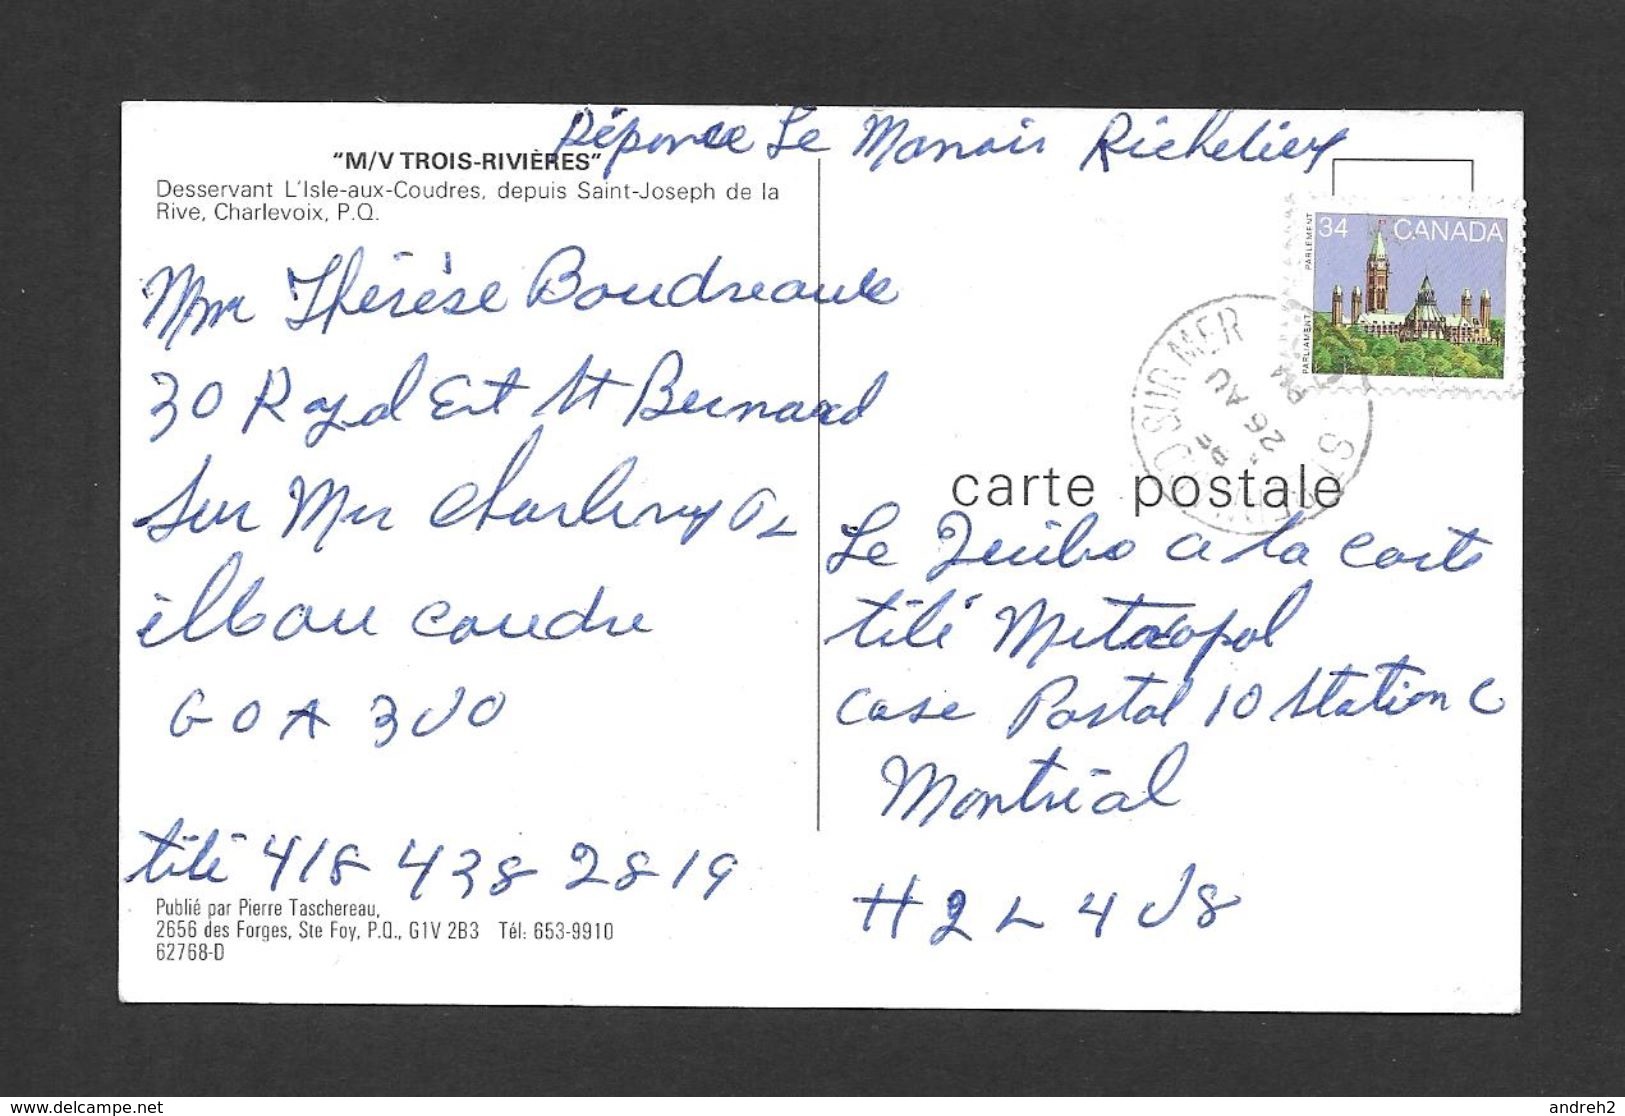 Réponse Le Manoir Richelieu
"M/V TROIS-RIVIÈRES"
Desservant L'Isle-aux-Coudres, depuis Saint-Joseph de la
Rive, Charlevoix, P.Q.
Mme Thérèse Boudreault
30 Royal Est St Bernard
Sur Mer Charlevoy
coudre
G0A 3J0
télé 418 438 2819
Publié par Pierre Taschereau,
2656 des Forges, Ste Foy, P.Q., G1V 2B3 Tél: 653-9910
62768-D
34 CANADA
PARLIAMENT PARLEMENT
SUR MER
26 AU
PM
carte postale
Le a la carte
télé Métropol
case Postal 10 Station C
Montréal
H2L 4J8
www.delcampe.net
andreh2